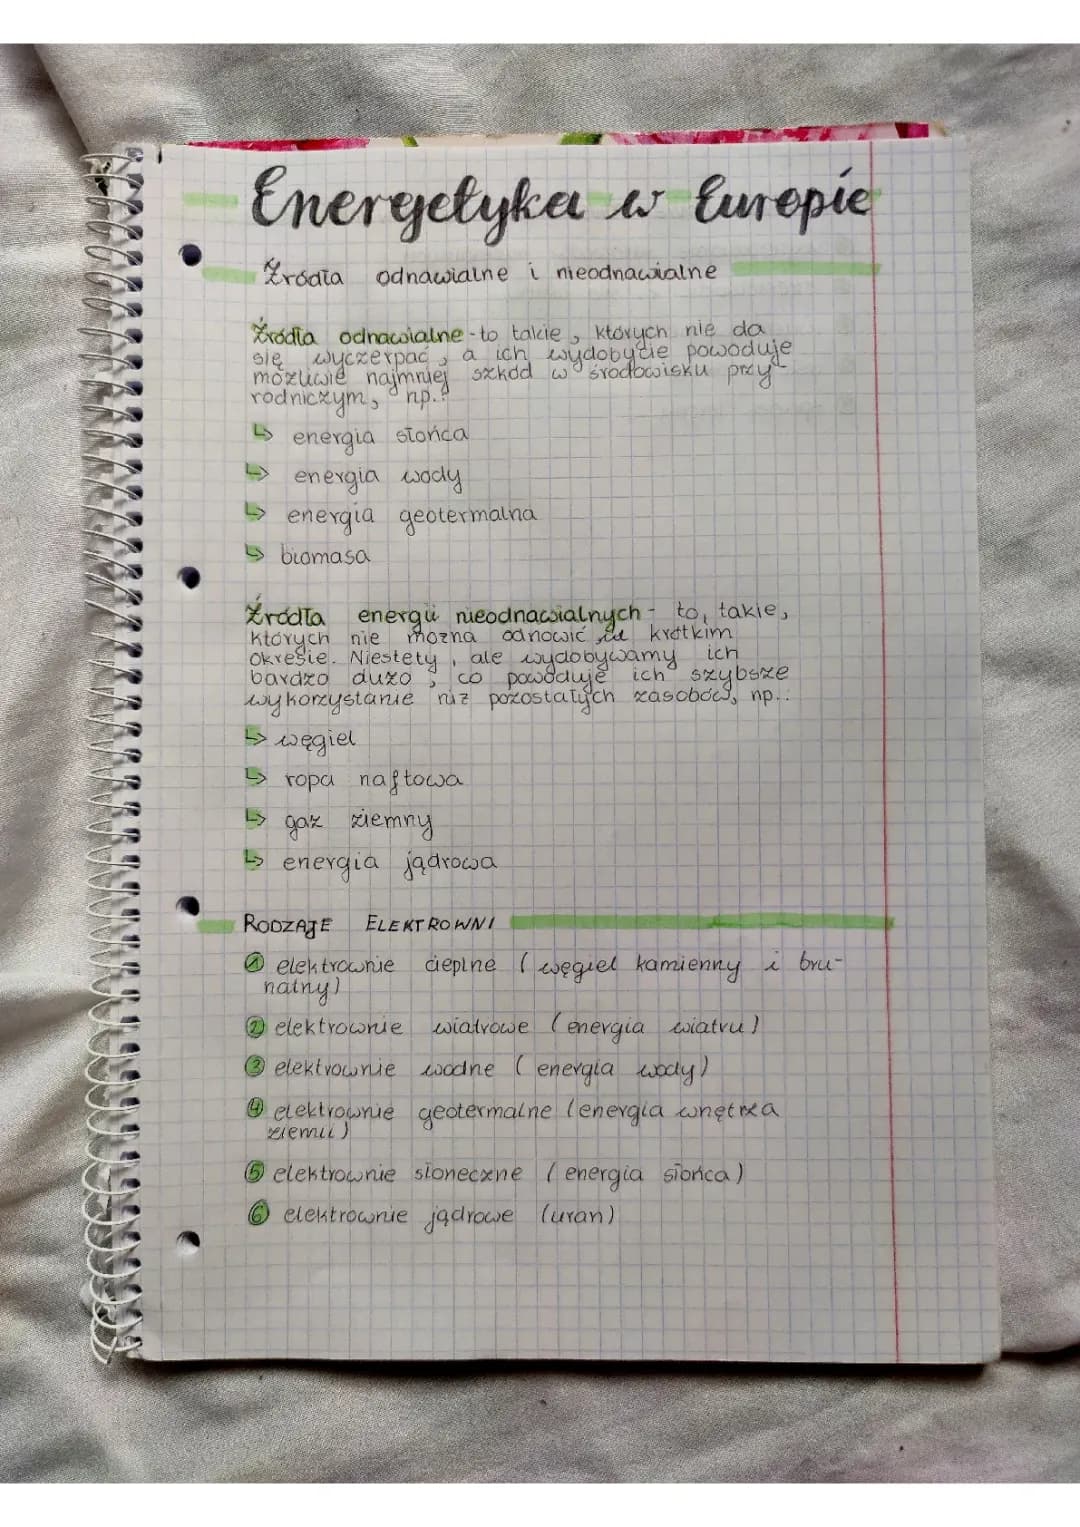 Energetyka w Europie
Źródła odnawialne i nieodnawialne
Źródła odnawialne - to takie, których nie da
się wyczerpać, a ich wydobycie powoduje
możliwie najmniej szkód w środowisku przy-
rodniczym, np.:
↳ energia słońca
↳ energia wody
↳ energia geotermalna
↳ biomasa
Źródła energii nieodnawialnych - to, takie,
których nie można odnowić w krótkim
okresie. Niestety, ale wydobywamy ich
bardzo dużo, co powoduje ich szybsze
wykorzystanie niż pozostałych zasobów, np.:
↳ węgiel
↳ ropa naftowa
↳ gaz ziemny
↳ energia jądrowa
RODZAJE ELEKTROWNI
① elektrownie cieplne (węgiel kamienny i bru-
natny)
② elektrownie wiatrowe (energia wiatru)
③ elektrownie wodne (energia wody)
④ elektrownie geotermalne (energia wnętrza
ziemii)
⑤ elektrownie słoneczne (energia słońca)
⑥ elektrownie jądrowe (uran)